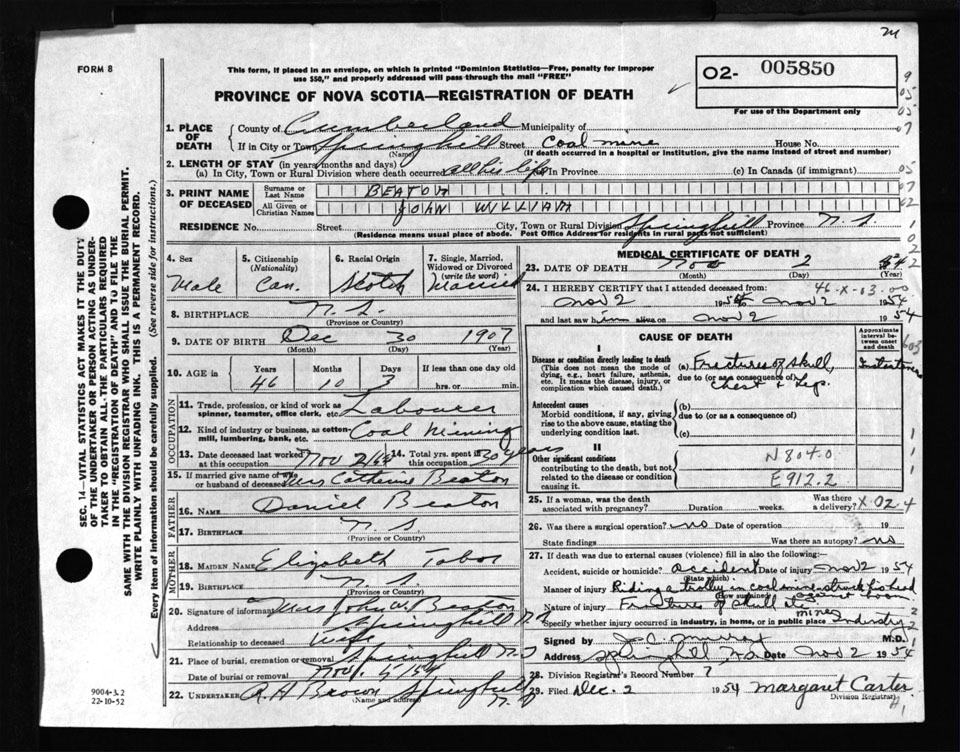 24
FORM 8
This form, if placed in an envelope, on which is printed "Dominion Statistics—Free, penalty for improper
use $50," and properly addressed will pass through the mail "FREE"
O2- 005850
PROVINCE OF NOVA SCOTIA—REGISTRATION OF DEATH
For use of the Department only
1. PLACE OF DEATH
County of Cumberland Municipality of
If in City or Town Springhill Street Coal mine House No.
(Name) (If death occurred in a hospital or institution, give the name instead of street and number)
2. LENGTH OF STAY (in years, months and days)
(a) In City, Town or Rural Division where death occurred all his life (b) In Province (c) In Canada (if immigrant)
3. PRINT NAME OF DECEASED
Surname or Last Name BEATON
All Given or Christian Names JOHN WILLIAM
RESIDENCE No. Street City, Town or Rural Division Springhill Province N.S.
(Residence means usual place of abode. Post Office Address for residents in rural parts not sufficient)
4. Sex Male
5. Citizenship (Nationality) Can.
6. Racial Origin Scotch
7. Single, Married, Widowed or Divorced (write the word) Married
8. BIRTHPLACE N.S.
(Province or Country)
9. DATE OF BIRTH Dec 30 1907
(Month) (Day) (Year)
10. AGE in Years 46 Months 10 Days 3 If less than one day old hrs. or min.
OCCUPATION
11. Trade, profession, or kind of work as spinner, teamster, office clerk, etc. Labourer
12. Kind of industry or business, as cotton-mill, lumbering, bank, etc. Coal Mining
13. Date deceased last worked at this occupation Nov 2/54 14. Total yrs. spent in this occupation 30 years
15. If married give name of wife or husband of deceased Mrs Catherine Beaton
FATHER
16. NAME Daniel Beaton
17. BIRTHPLACE N.S.
(Province or Country)
MOTHER
18. MAIDEN NAME Elizabeth Tabor
19. BIRTHPLACE N.S.
(Province or Country)
20. Signature of informant Mrs John W. Beaton
Address Springhill N.S.
Relationship to deceased wife
21. Place of burial, cremation or removal Springhill N.S
Date of burial or removal Nov. /54
22. UNDERTAKER R H Brown Springhill N.S.
(Name and address)
9004-3.2
22-10-52
SEC. 14—VITAL STATISTICS ACT MAKES IT THE DUTY
OF THE UNDERTAKER OR PERSON ACTING AS UNDERTAKER
TO OBTAIN ALL THE PARTICULARS REQUIRED
IN THE "REGISTRATION OF DEATH" AND TO FILE THE
SAME WITH THE DIVISION REGISTRAR WHO SHALL ISSUE THE BURIAL PERMIT.
WRITE PLAINLY WITH UNFADING INK. THIS IS A PERMANENT RECORD.
Every item of information should be carefully supplied. (See reverse side for instructions.)
MEDICAL CERTIFICATE OF DEATH
23. DATE OF DEATH Nov 2
(Month) (Day) (Year)
24. I HEREBY CERTIFY that I attended deceased from: 46-X-03.00
Nov 2 1954 to Nov 2 1954
and last saw him alive on Nov 2 1954
CAUSE OF DEATH
Approximate interval between onset and death
I
Disease or condition directly leading to death
(This does not mean the mode of dying, e.g., heart failure, asthenia, etc. It means the disease, injury, or complication which caused death.)
(a) Fractures of Skull,
due to (or as a consequence of) Chest & Legs.
Antecedent causes
Morbid conditions, if any, giving rise to the above cause, stating the underlying condition last.
(b)
due to (or as a consequence of)
(c)
II
Other significant conditions contributing to the death, but not related to the disease or condition causing it.
N804.0
E912.2
25. If a woman, was the death associated with pregnancy? Duration weeks. Was there a delivery? X-02.4
26. Was there a surgical operation? no Date of operation 19
State findings Was there an autopsy? no
27. If death was due to external causes (violence) fill in also the following:—
Accident, suicide or homicide? accident Date of injury Nov 2 1954
(State which)
Manner of injury Riding a trolley in coal mine struck his head against boom
(How sustained)
Nature of injury Fracture of skull etc
Specify whether injury occurred in industry, in home, or in public place mines Industry
Signed by J C Murray M.D.
Address Springhill N.S. Date Nov 2 1954
28. Division Registrar's Record Number 7
29. Filed Dec. 2 1954 Margaret Carter
Division Registrar